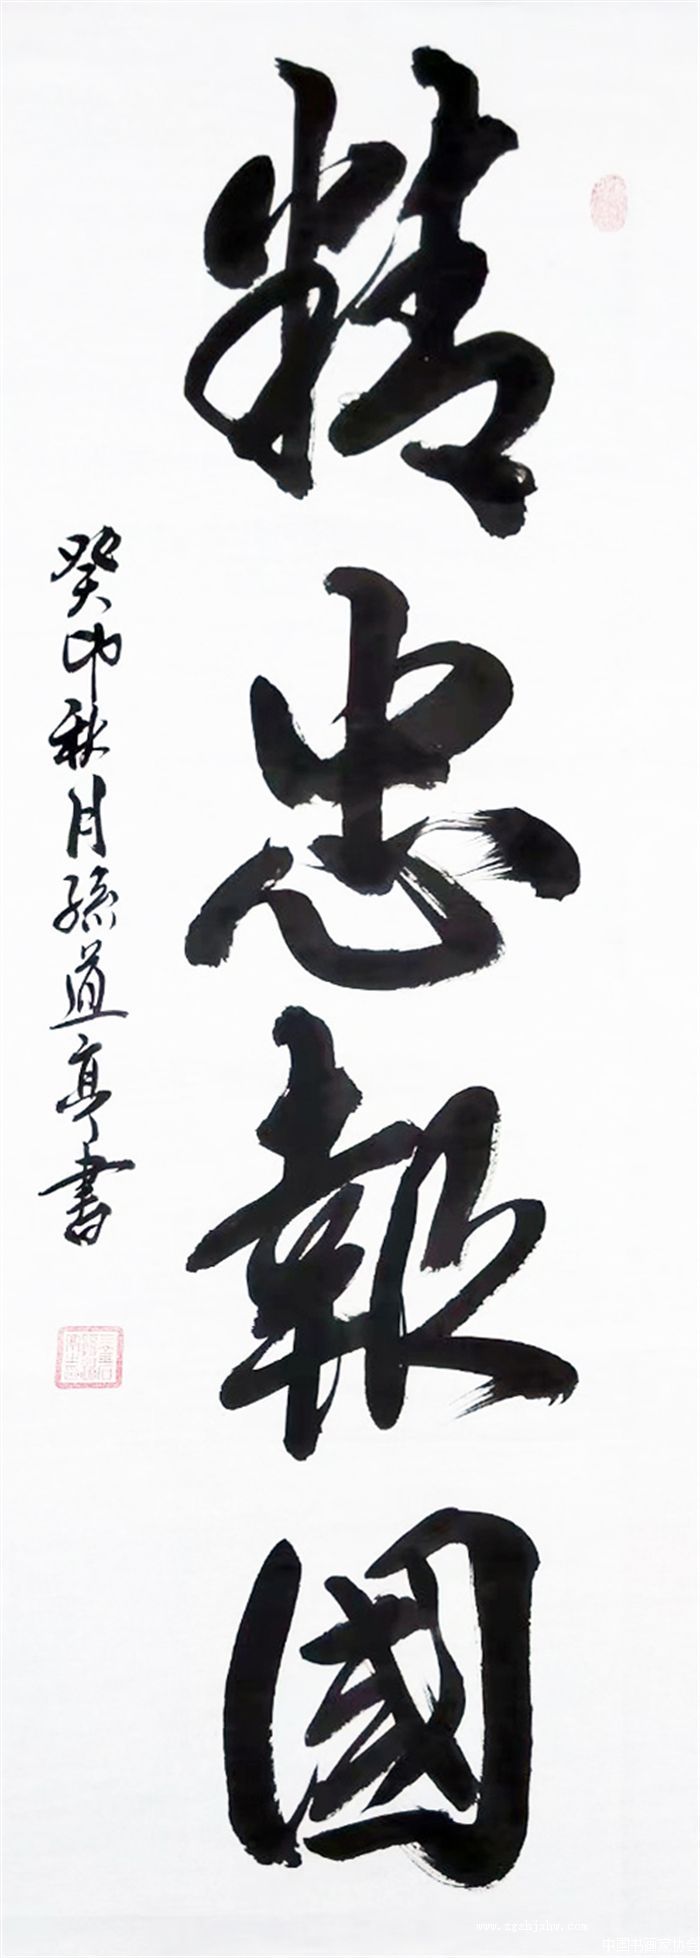 精忠報國
癸卯秋月孫道亭書
www.zgshjxhw.com
中国书画家协会